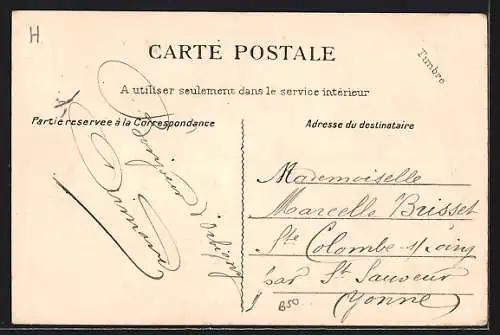 H
CARTE POSTALE
Timbre
A utiliser seulement dans le service intérieur
Partie réservée à la Correspondance
Adresse du destinataire
Bonjour d'Ortigny
Mademoiselle
Marcelle Brisset
Ste Colombe s/Loing
par St Sauveur
(Yonne)
B50